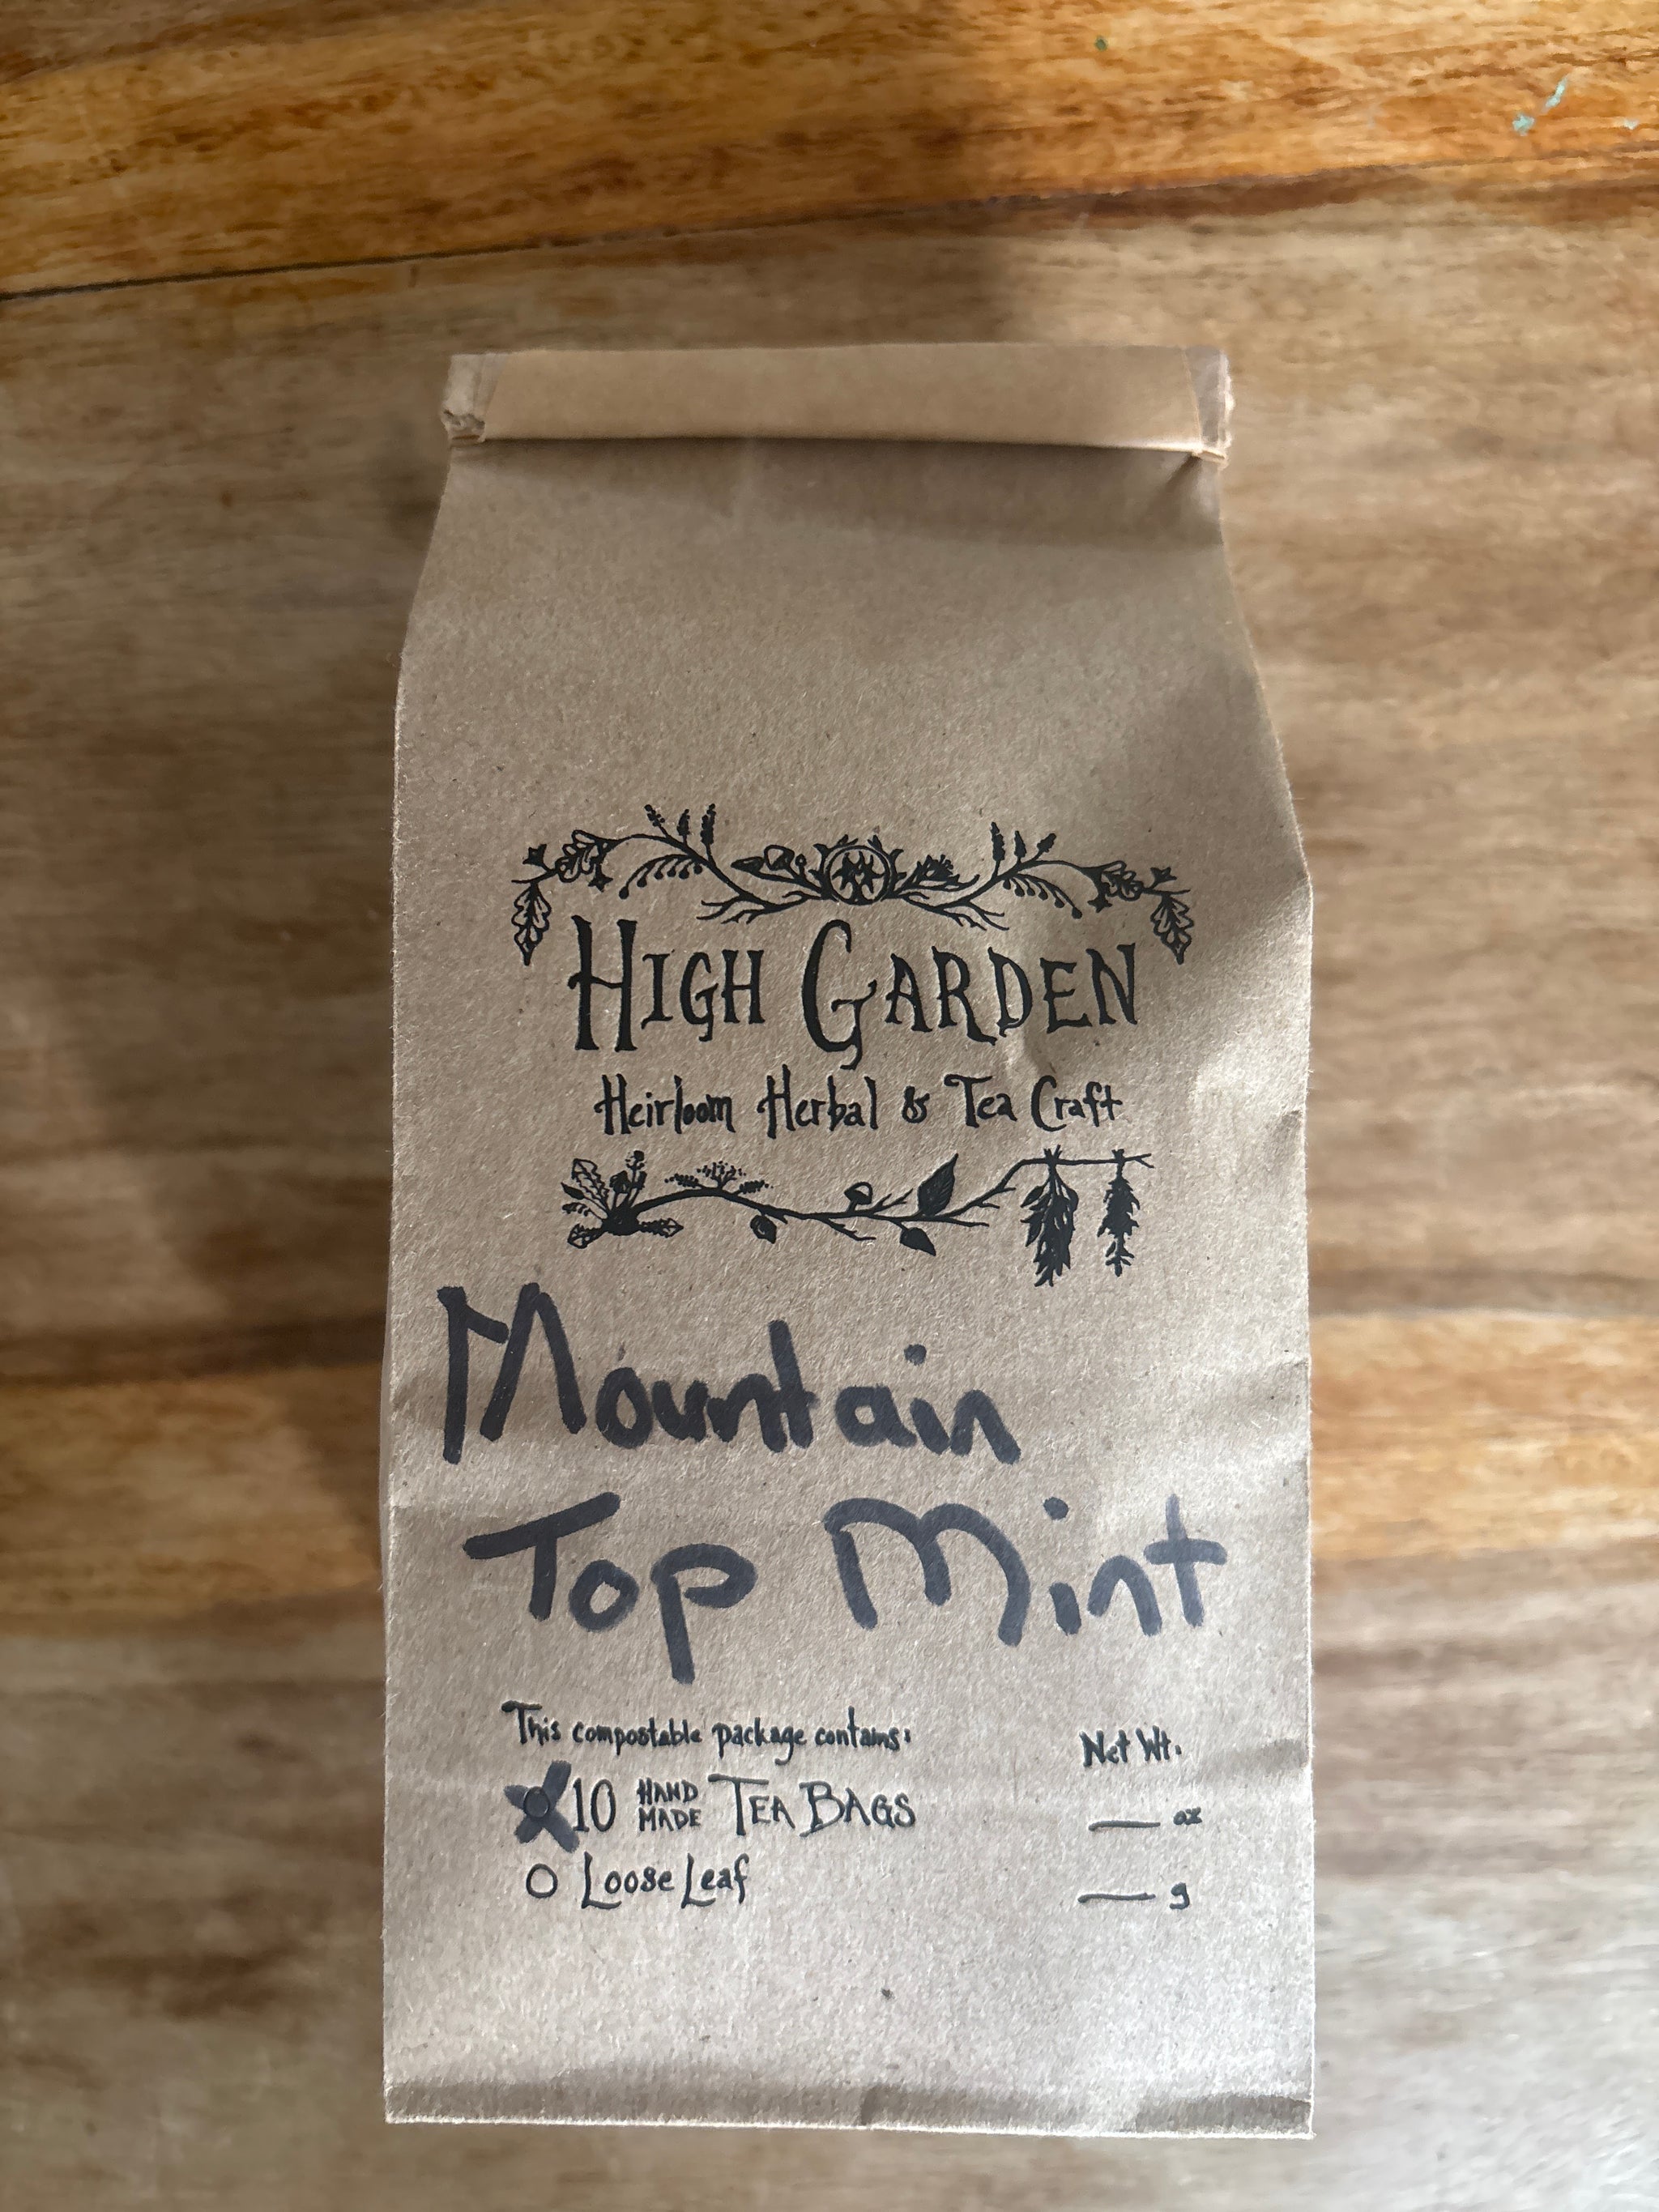 HIGH GARDEN
Heirloom Herbal & Tea Craft
Mountain
Top Mint
This compostable package contains:
Net Wt.
10 HAND MADE TEA BAGS
oz
Loose Leaf
g